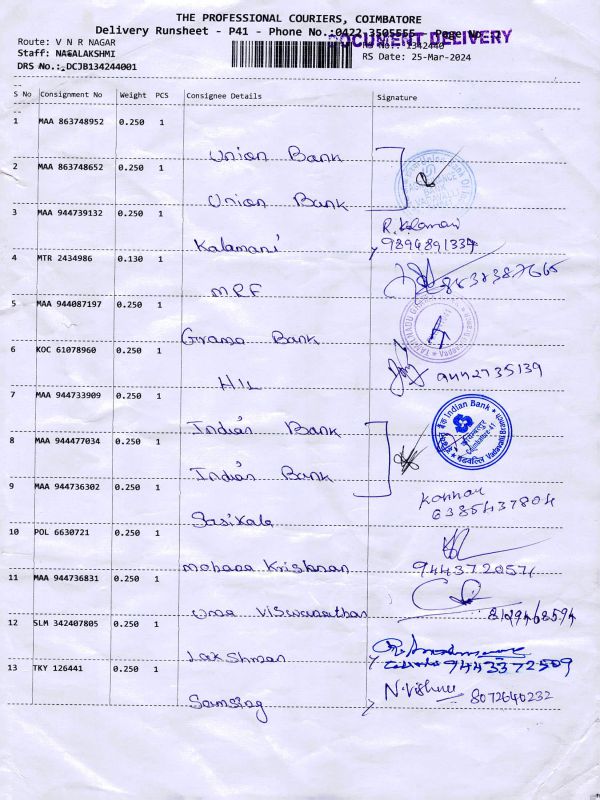 THE PROFESSIONAL COURIERS, COIMBATORE
Delivery Runsheet - P41 - Phone No.:0422 3505555 Page No :1
DOCUMENT DELIVERY
Route: V N R NAGAR
Staff: NAGALAKSHMI
DRS No.: DCJB134244001
RS No: 1342440
RS Date: 25-Mar-2024
S No Consignment No Weight PCS Consignee Details Signature
1 MAA 863748952 0.250 1
Union Bank
2 MAA 863748652 0.250 1
Union Bank
3 MAA 944739132 0.250 1
Kalamani R. Kalamani
9894891334
4 MTR 2434986 0.130 1
MRF
5 MAA 944087197 0.250 1
Grama Bank
6 KOC 61078960 0.250 1
HIL 9442735139
7 MAA 944733909 0.250 1
Indian Bank
Indian Bank
8 MAA 944477034 0.250 1
Indian Bank
9 MAA 944736302 0.250 1
Sasikala Kannan
6385437804
10 POL 6630721 0.250 1
Mohana Krishnan 9443720571
11 MAA 944736831 0.250 1
Uma Viswanathan
12 SLM 342407805 0.250 1
Lakshman 9443372509
13 TKY 126441 0.250 1
N. Vishnu 8072640232